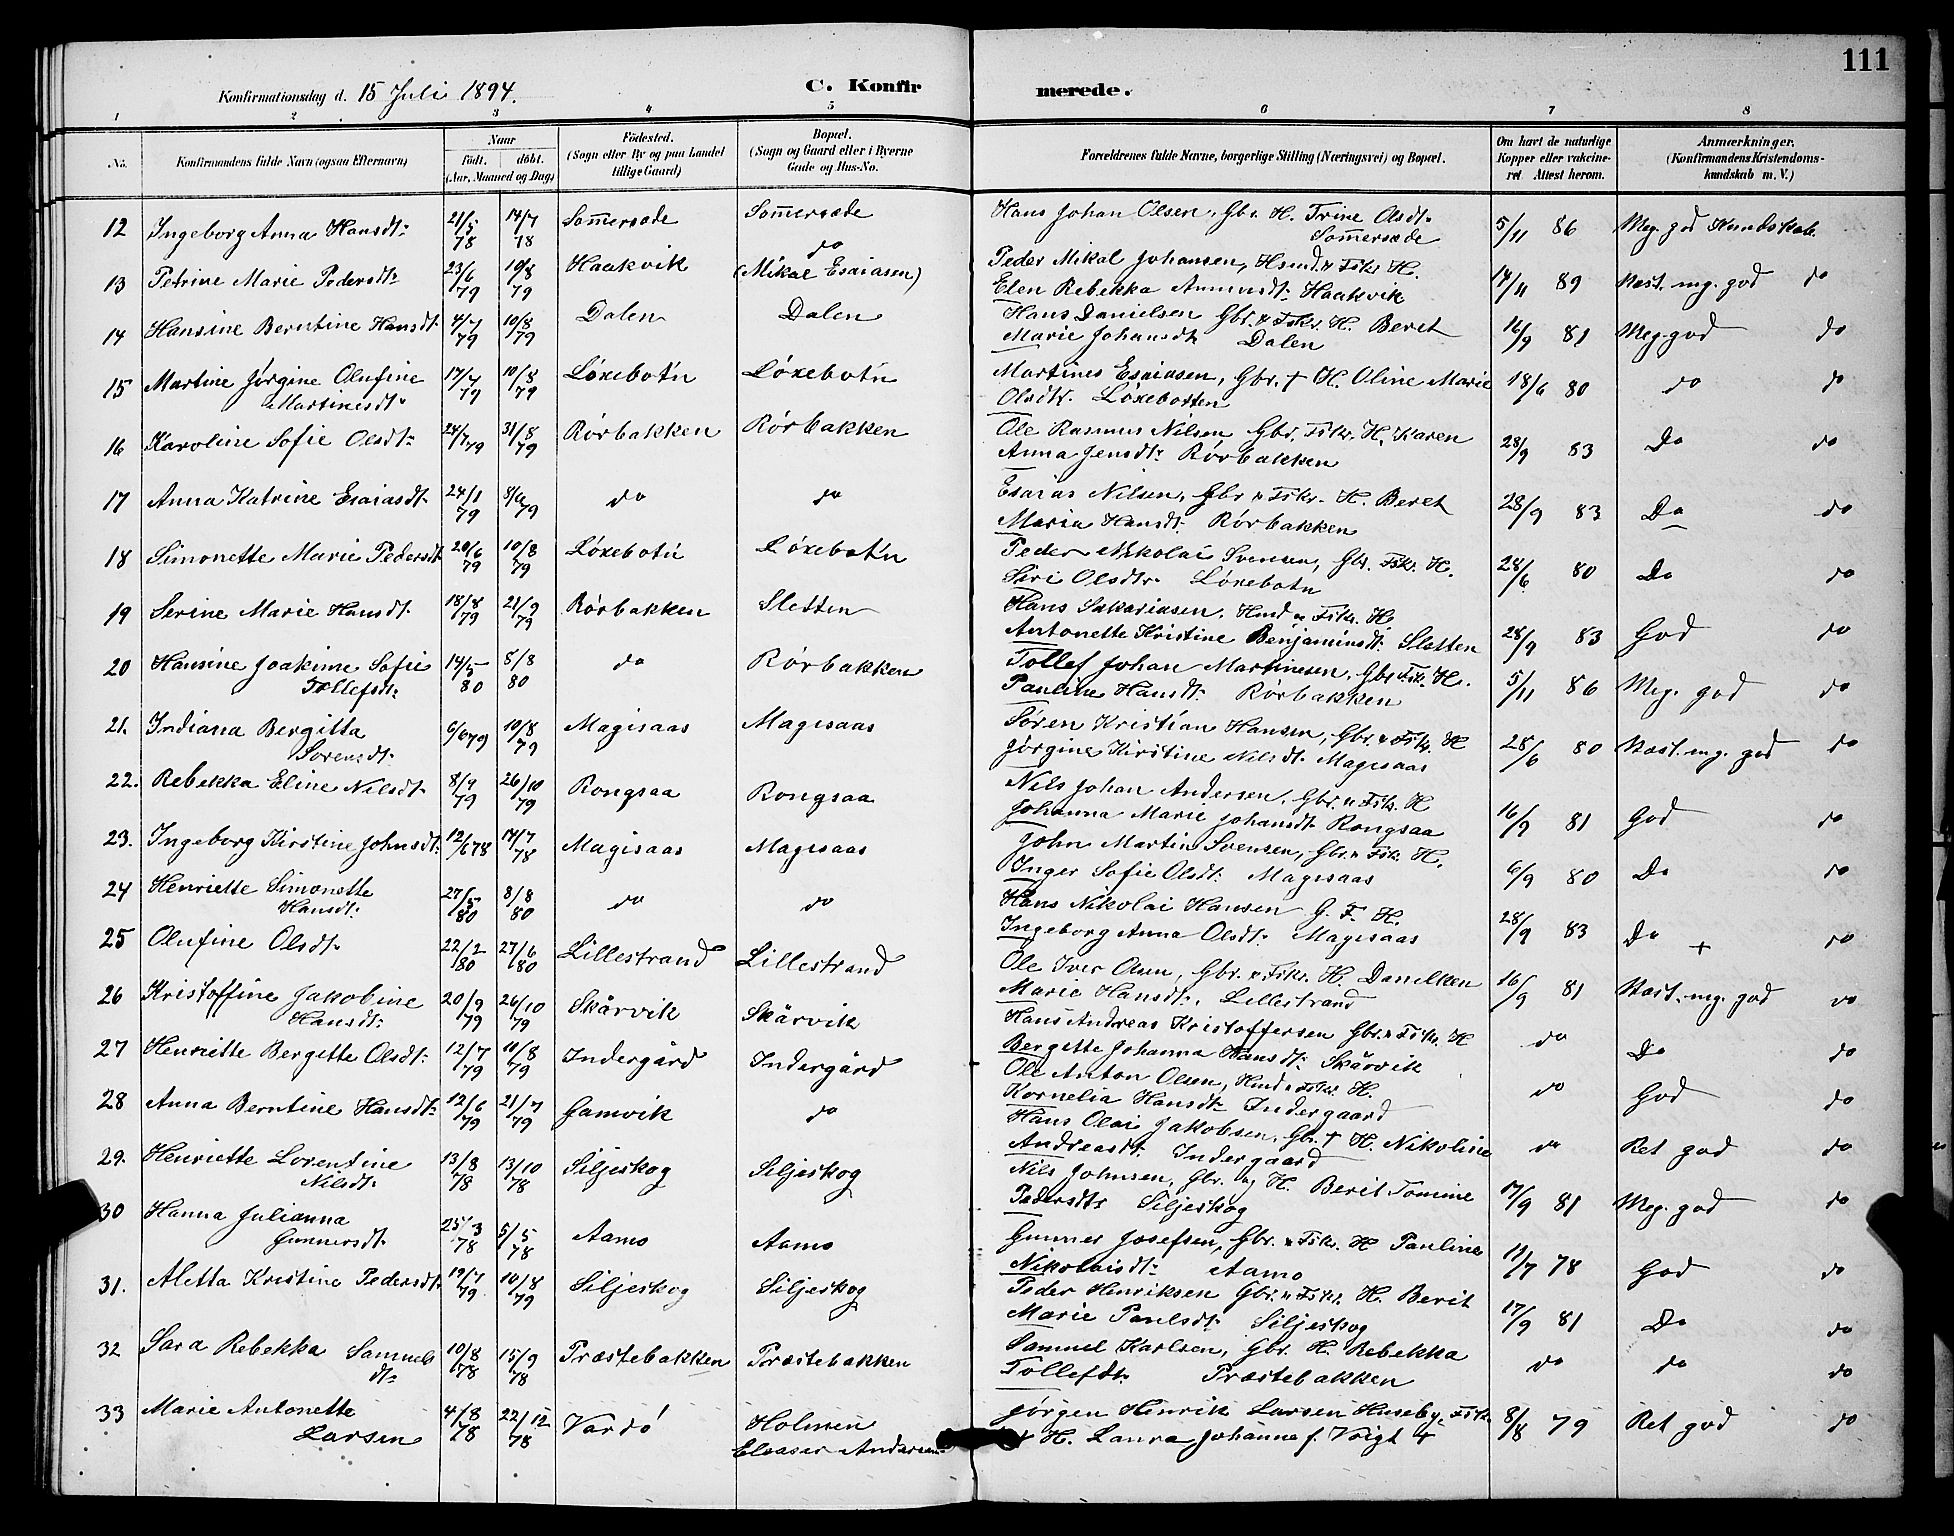 111
Konfirmationsdag d. 15 Juli 1894. C. Konfirmerede.
1 2 3 4 5 6 7 8
No. Konfirmandens fulde Navn (ogsaa Efternavn) Naar født. døbt. (Aar, Maaned og Dag) Fødested. (Sogn eller By og paa Landet tillige Gaard) Bopæl. (Sogn og Gaard eller i Byerne Gade og Hus-No. Forældrenes fulde Navne, borgerlige Stilling (Næringsvei) og Bopæl. Om havt de naturlige Kopper eller vakcineret. Attest herom. Anmærkninger. (Konfirmandens Kristendomskundskab m. V.)
12 Ingeborg Anna Hansdt: 21/5 78 14/7 78 Som̄ersæde Som̄ersæde Hans Johan Olsen, Gbr. H. Trine Olsdt: 5/11 86 Meg. god Kundskab.
Som̄ersæde
13 Petrine Marie Pedersdt: 23/6 79 10/8 79 Haakvik do (Mikal Esaiasen) Peder Mikal Johansen, Hsmd. & Fskr. H. 14/11 89 Næst. mg. god do
Elen Rebekka Amundsdt: Haakvik
14 Hansine Berntine Hansdt: 4/7 79 10/8 79 Dalen Dalen Hans Danielsen Gbr. & Fskr. H. Beret 16/9 81 Meg. god do
Marie Johansdt: Dalen
15 Martine Jørgine Olufine 17/7 79 10/8 79 Løxebotn Løxebotn Martines Esaiasen, Gbr. + H. Oline Marie 18/6 80 do do
Martinesdt: Olsdtr. Løxebotten
16 Karoline Sofie Olsdt: 24/7 79 31/8 79 Rørbakken Rørbakken Ole Rasmus Nilsen Gbr. Fskr. H. Karen 28/9 83 Do do
Anna Jensdt: Rørbakken
17 Anna Katrine Esaiasdt: 24/1 79 8/6 79 do do Esaias Nilsen, Gbr & Fskr. H. Beret 28/9 83 Do do
Maria Hansdt: Rørbakken
18 Simonette Marie Pedersdt 20/6 79 10/8 79 Løxebotn Løxebotn Peder Nikolai Svensen, Gbr. Fskr. H. 28/6 80 Do do
Siri Olsdtr. Løxebotn
19 Serine Marie Hansdt: 18/8 79 21/9 79 Rørbakken Sletten Hans Sakariasen, Hmd & Fskr. H. 28/9 83 God do
Antonette Kristine Benjaminsdt: Sletten
20 Hansine Joakime Sofie 14/5 80 8/8 80 do Rørbakken Tollef Johan Martinesen, Gbr & Fsk. H. 5/11 86 Meg. god do
Tollefsdt: Pauline Hansdt: Rørbakken
21. Indiana Bergitta 6/6 79 10/8 79 Magisaas Magisaas Søren Kristian Hansen, Gbr. & Fskr. H 28/6 80 Næst. mg. god do
Sørensdt. Jørgine Kirstine Nilsdt. Magisaas
22. Rebekka Eline Nilsdt. 8/9 79 26/10 79 Rongsaa Rongsaa Nils Johan Andersen, Gbr. & Fsk. H 16/9 81 God do
Johanna Marie Johansdt. Rongsaa
23. Ingeborg Kirstine Johnsdt: 12/6 78 14/7 78 Magisaas Magisaas John Martin Svensen, Gbr. & Fsk. H. 6/9 80 Do do
Inger Sofie Olsdt: Magisaas
24 Henriette Simonette 27/5 80 8/8 80 do do Hans Nikolai Hansen G. F. H. 28/9 83 Do + do
Hansdt: Ingeborg Anna Olsdt: Magisaas
25 Olufine Olsdt. 22/2 80 27/6 80 Lillestrand Lillestrand Ole Iver Olsen, Gbr. & Fskr. H. Danilken 16/9 81 Næst. mg. god do
Marie Hansdt. Lillestrand
26 Kristoffine Jakobine 20/9 79 26/10 79 Skårvik Skårvik Hans Andreas Kristoffersen Gbr. & Fskr. H do Do do
Hansdt: Bergette Johanna Hansdt: Skårvik
27 Henriette Bergette Olsdt: 12/7 79 10/8 79 Indergård Indergård Ole Anton Olsen, Hmd & Fskr. H. do God do
Kornelia Hansdt: Indergaard
28 Anna Berntine Hansdt: 12/6 79 21/7 79 Gamvik do Hans Olai Jakobsen, Gbr. + H. Nikoline do Ret god do
Andreasdt: Indergaard
29. Henriette Lorentine 13/8 78 13/10 78 Siljeskog Siljeskog Nils Johnsen, Gbr. og H. Berit Tomine 17/9 81 Meg. god do
Nilsdt: Pedersdtr Siljeskog
30 Hanna Julianna 25/3 78 5/5 78 Aamo Aamo Gunner Josefsen, Gbr. & Fsk. H Pauline 11/7 78 God do
Gunnersdt. Nikolaisdt: Aamo
31. Aletta Kristine Pedersdt: 19/7 79 10/8 79 Siljeskog Siljeskog Peder Henriksen Gbr. & Fskr. H. Berit 17/9 81 Do do
Marie Paulsdt: Siljeskog
32 Sara Rebekka Samuels 10/8 78 15/9 78 Præstebakken Præstebakken Samuel Karlsen, Gbr. H. Rebekka do do do
dt: Tollefdt. Præstebakken
33 Marie Antonette 4/8 78 22/12 78 Vardø Holmen Jørgen Henrik Larsen Huseby, Fsk. 8/8 79 Ret god do
Larsen Eleaser Andersen + H. Laura Johanne f. Voigt +